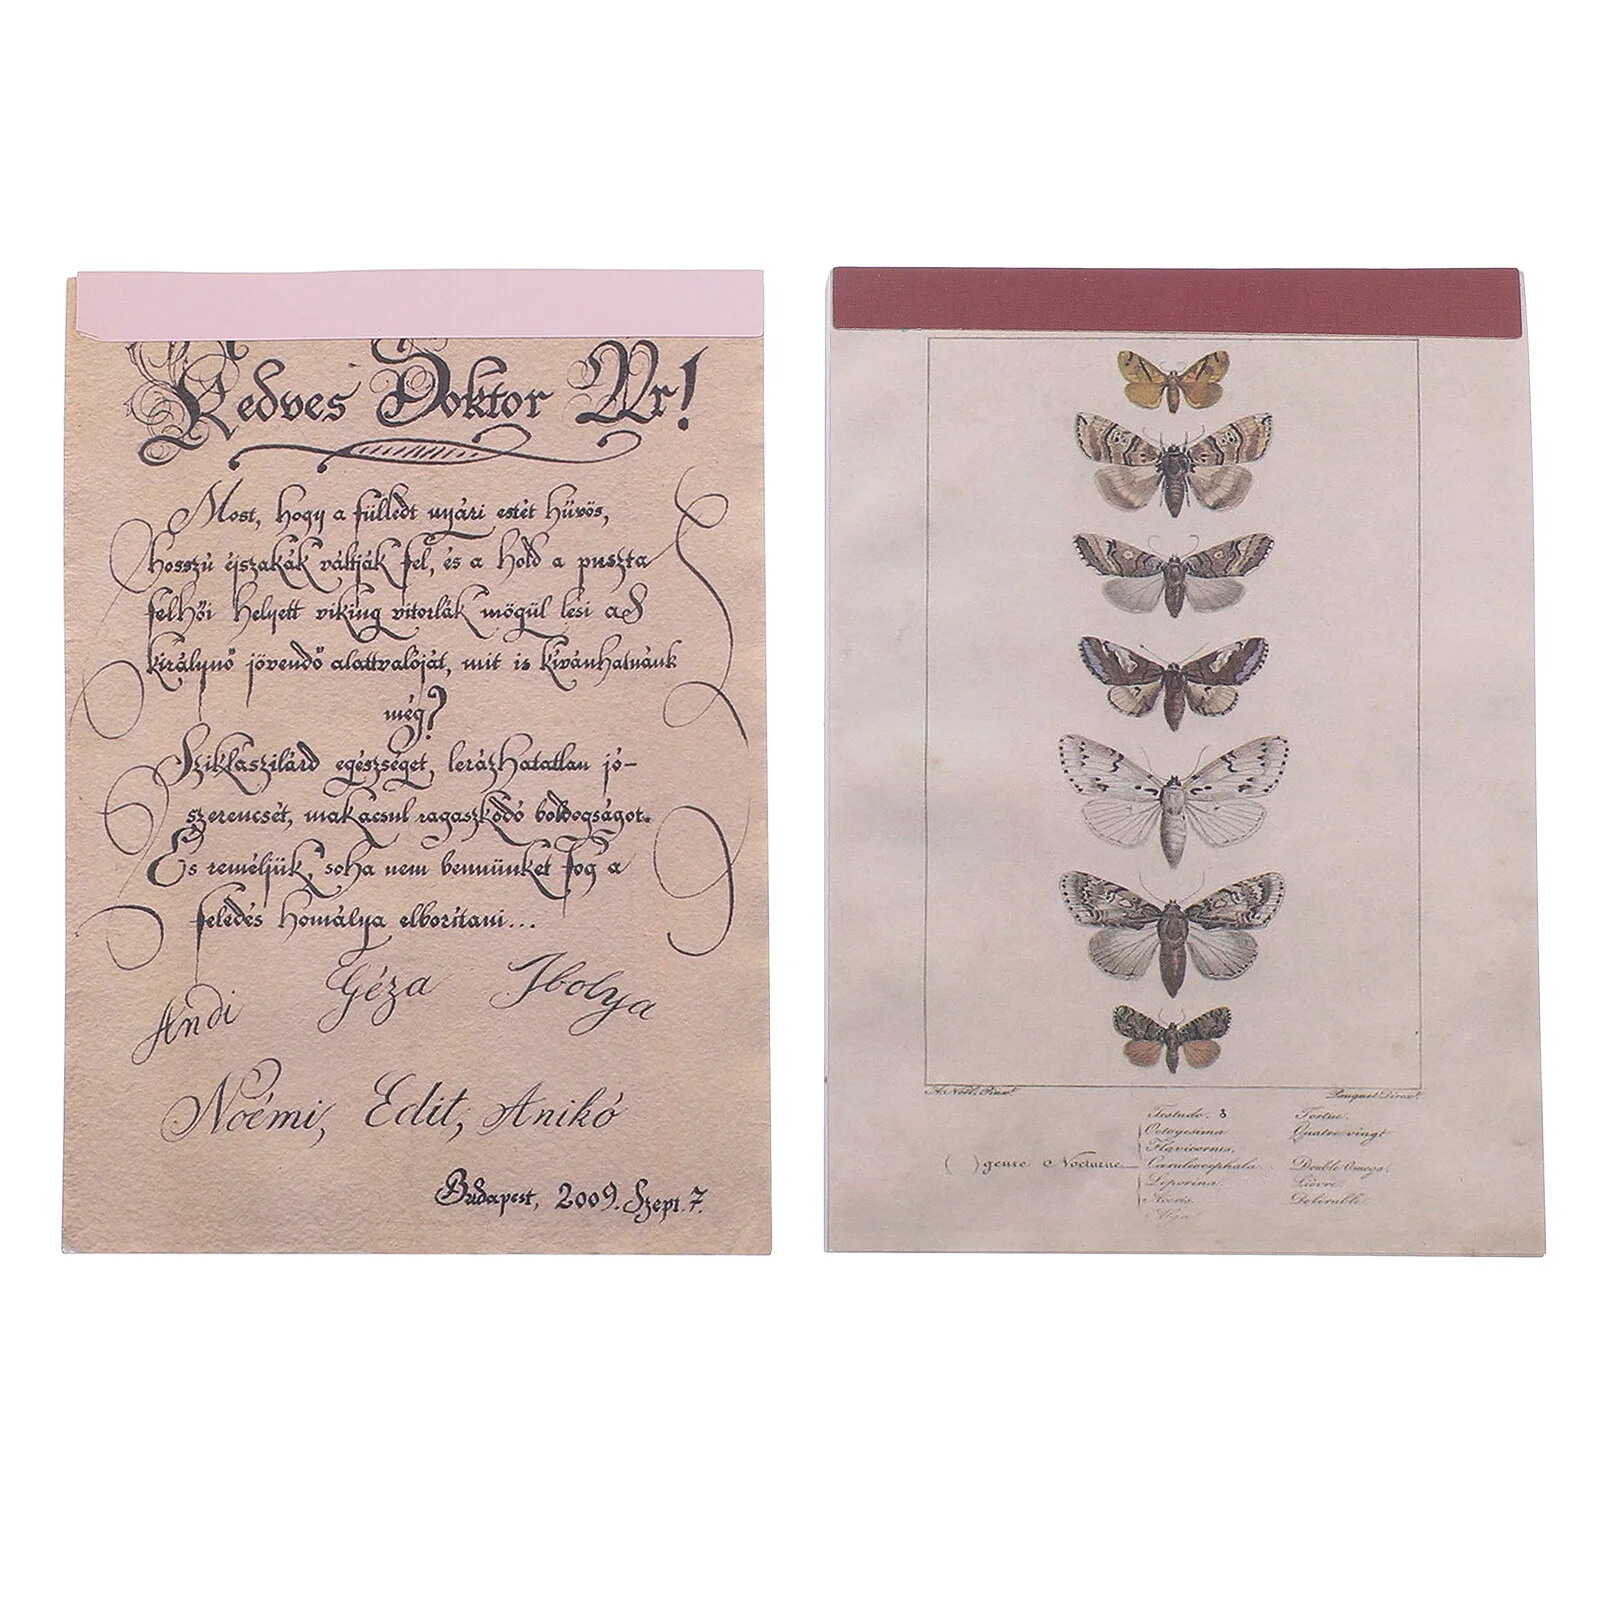 Kedves Doktor Úr!
Most, hogy a fülledt nyári estét hűvös,
hosszú éjszakák váltják fel, és a hold a puszta
felhői helyett viking vitorlák mögül lesi ad
királynő jövendő alattvalóját, mit is kívánhatnánk
még?
Sziklaszilárd egészséget, lerázhatatlan jó-
szerencsét, makacsul ragaszkodó boldogságot.
És reméljük, soha nem bennünket fog a
feledés homálya elborítani...
Andi Géza Ibolya
Noémi, Edit, Anikó
Budapest, 2009. Szept. 7.
A. Noël, Pinx.t Pauquet Direx.t
Testudo. 8 Tortue.
Octogesima Quatre-vingt
Flavicornis.
( ) genre Nocturne Cæruleocephala. Double Omega.
Leporina. Lièvre.